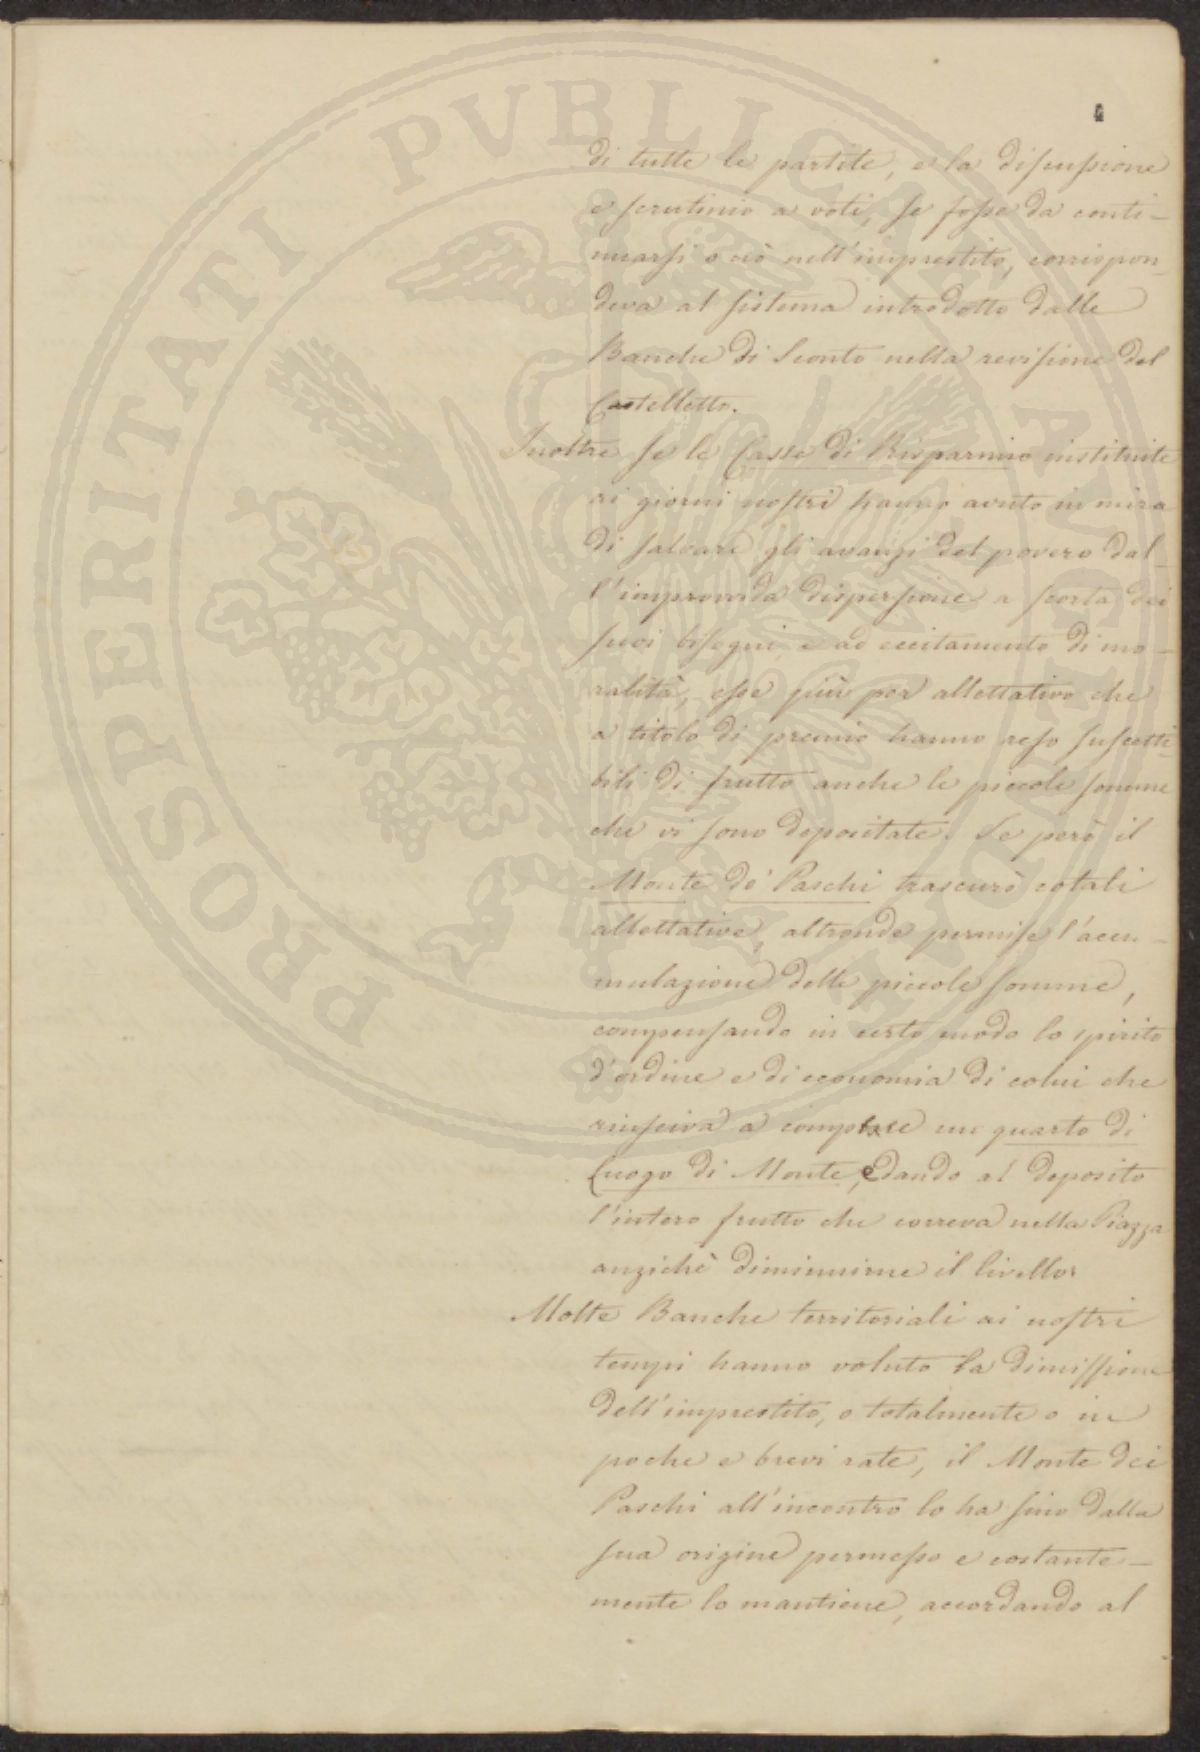 4
di tutte le partite, e la discussione
e scrutinio a voti, se fosse da conti-
nuarsi o nò nell'imprestito, corrispon-
deva al sistema introdotto dalle
Banche di Sconto nella revisione del
Castelletto.
Inoltre se le Casse di Risparmio instituite
ai giorni nostri hanno avuto in mira
di salvare gli avanzi del povero dal-
l'improvvida dispersione a scorta dei
suoi bisogni e ad eccitamento di mo-
ralità, esse più per allettativo che
a titolo di premio hanno reso suscetti-
bili di frutto anche le piccole somme
che vi sono depositate. Se però il
Monte de' Paschi trascurò cotali
allettative, altronde permise l'accu-
mulazione delle piccole somme,
compensando in certo modo lo spirito
d'ordine e di economia di colui che
riusciva a compiere un quarto di
Luogo di Monte, e dando al deposito
l'intero frutto che correva nella Piazza
anzichè diminuirne il livello.
Molte Banche territoriali ai nostri
tempi hanno voluto la dimissione
dell'imprestito, o totalmente o in
poche e brevi rate, il Monte dei
Paschi all'incontro lo ha sino dalla
sua origine permesso e costante-
mente lo mantiene, accordando al
PROSPERITATI PVBLICAE AVGENDAE